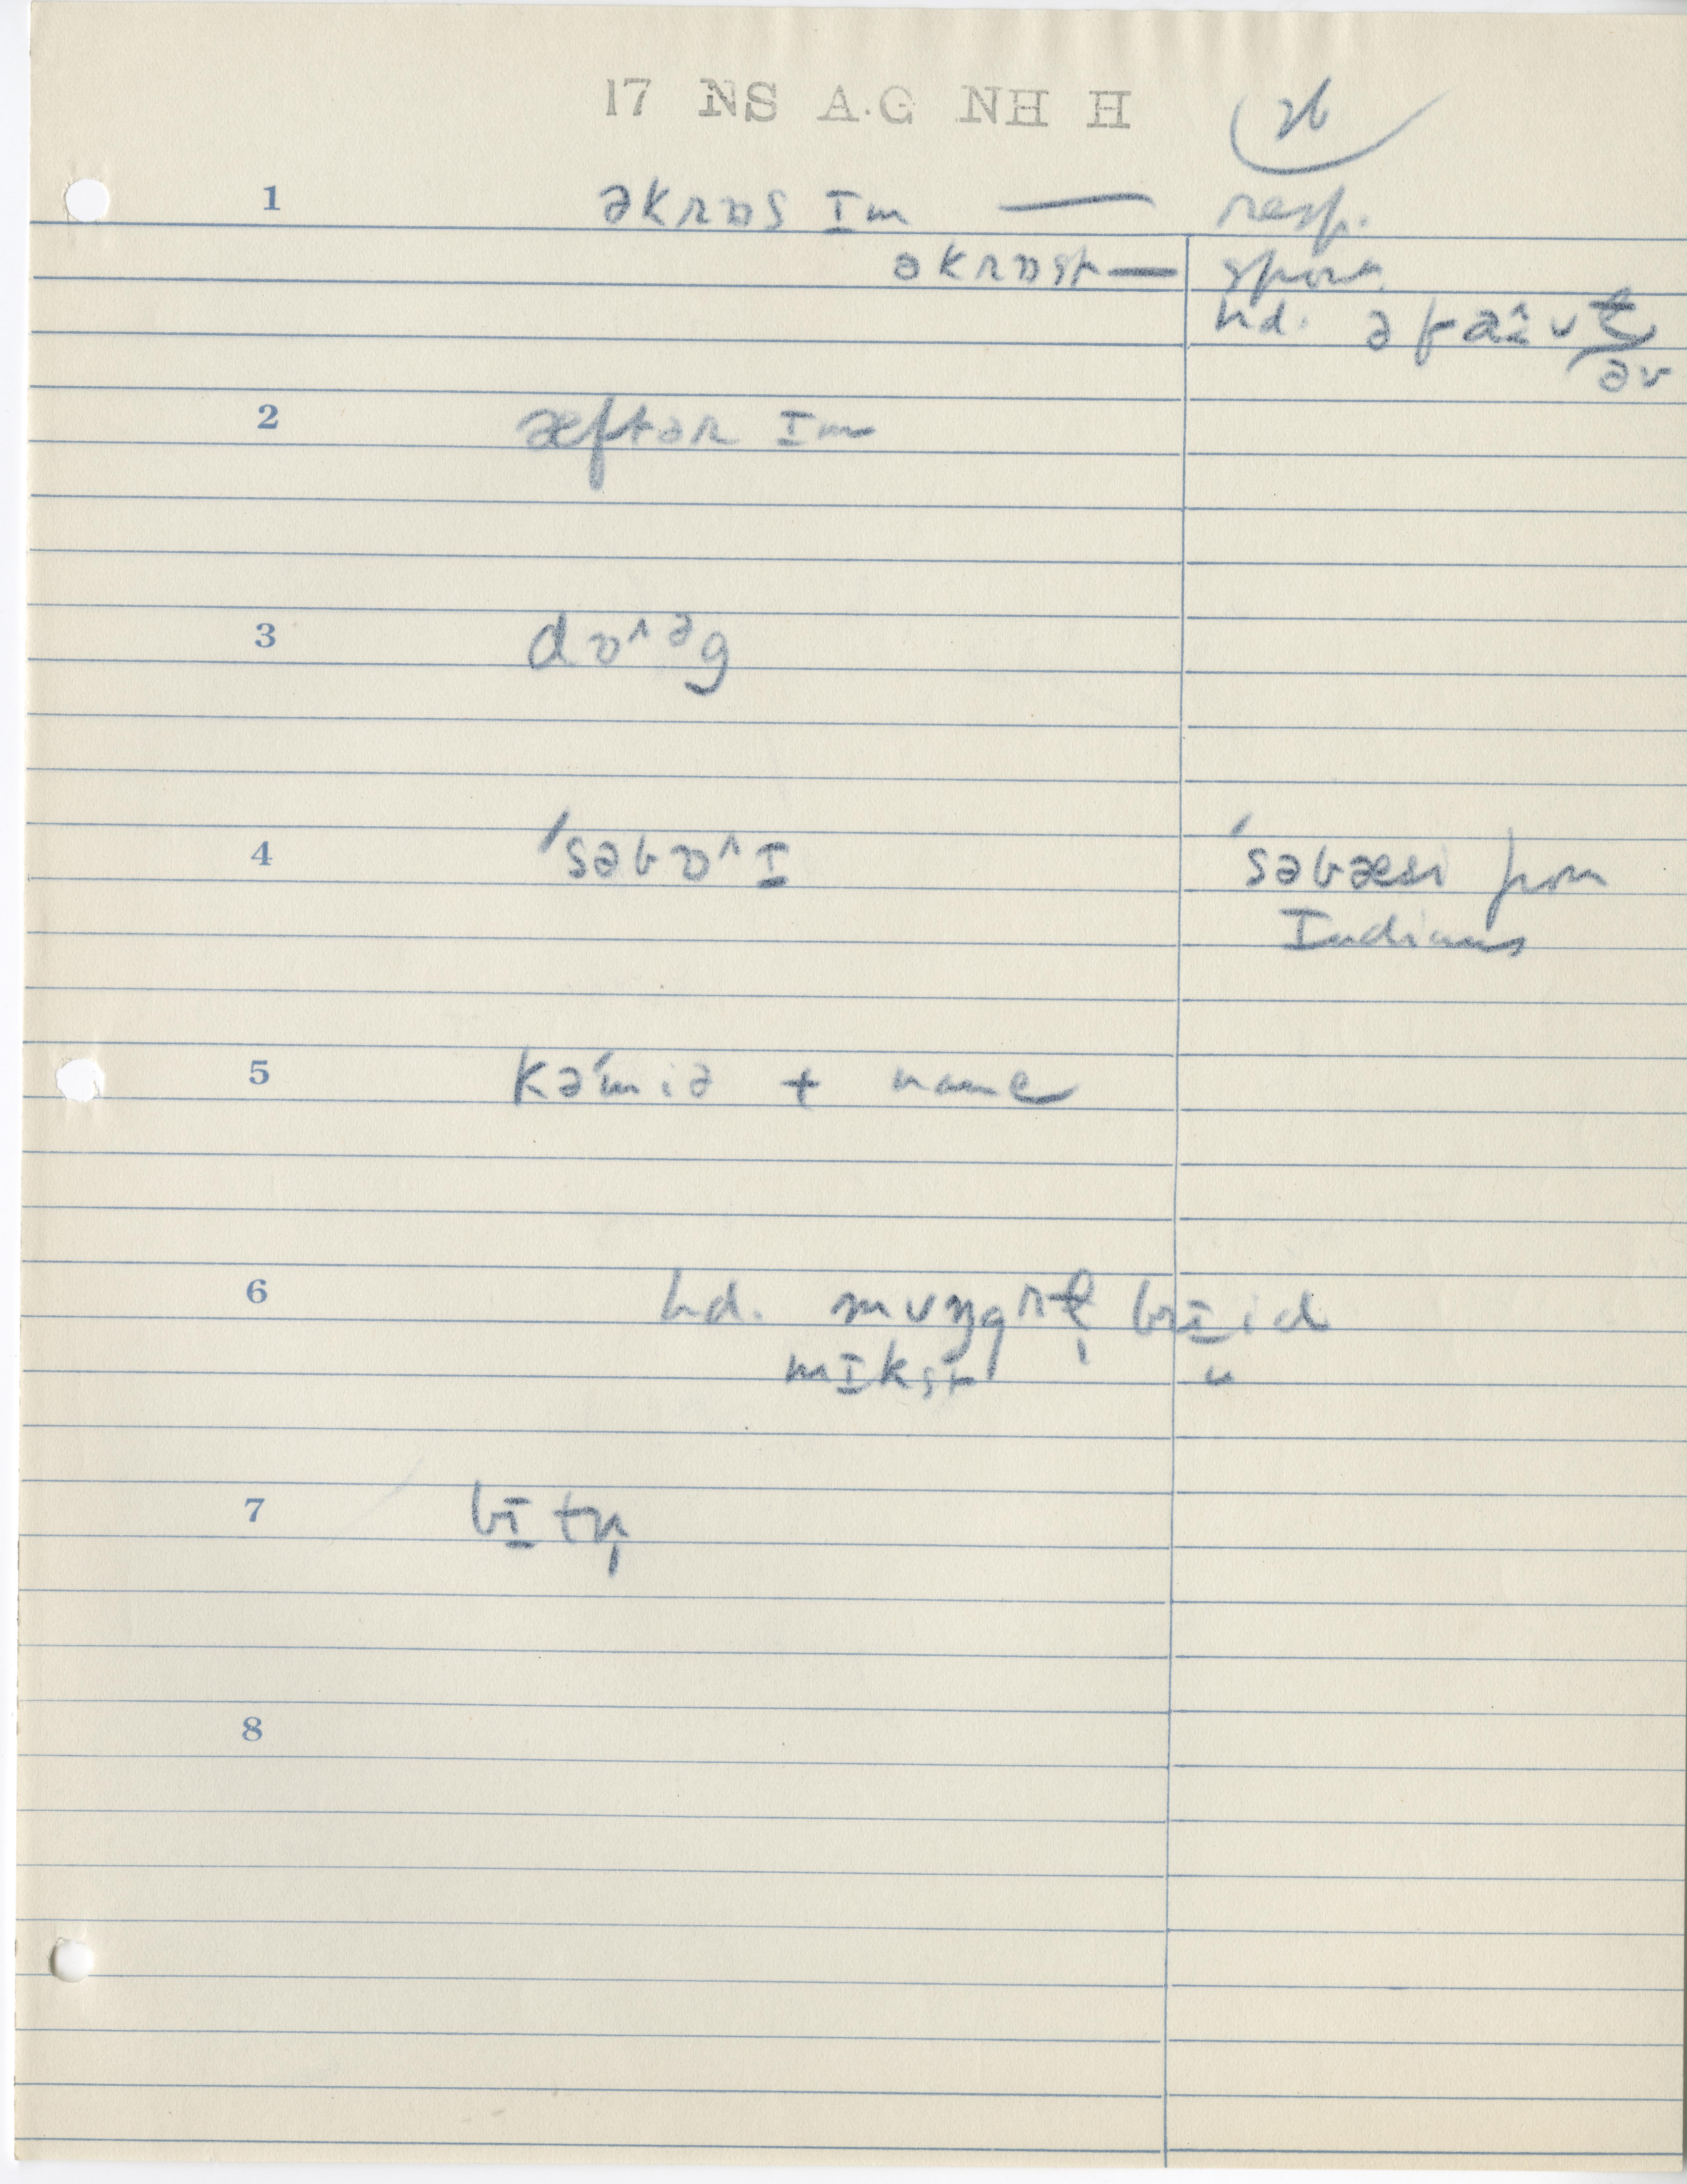 17 NS A.G NH H
26
1 əkrɒs ɪm — resp.
əkrɒst — spont.
hd.
2 æftər ɪm
3 dɒ^əg
4 ˈsəbɒ^ɪ
ˈsəbæsɪ from
Indians
5 kəˈmiə + name
6 hd. mʌŋgrɫ̩ brɪid
mɪkst "
7 bɪtʃ
8